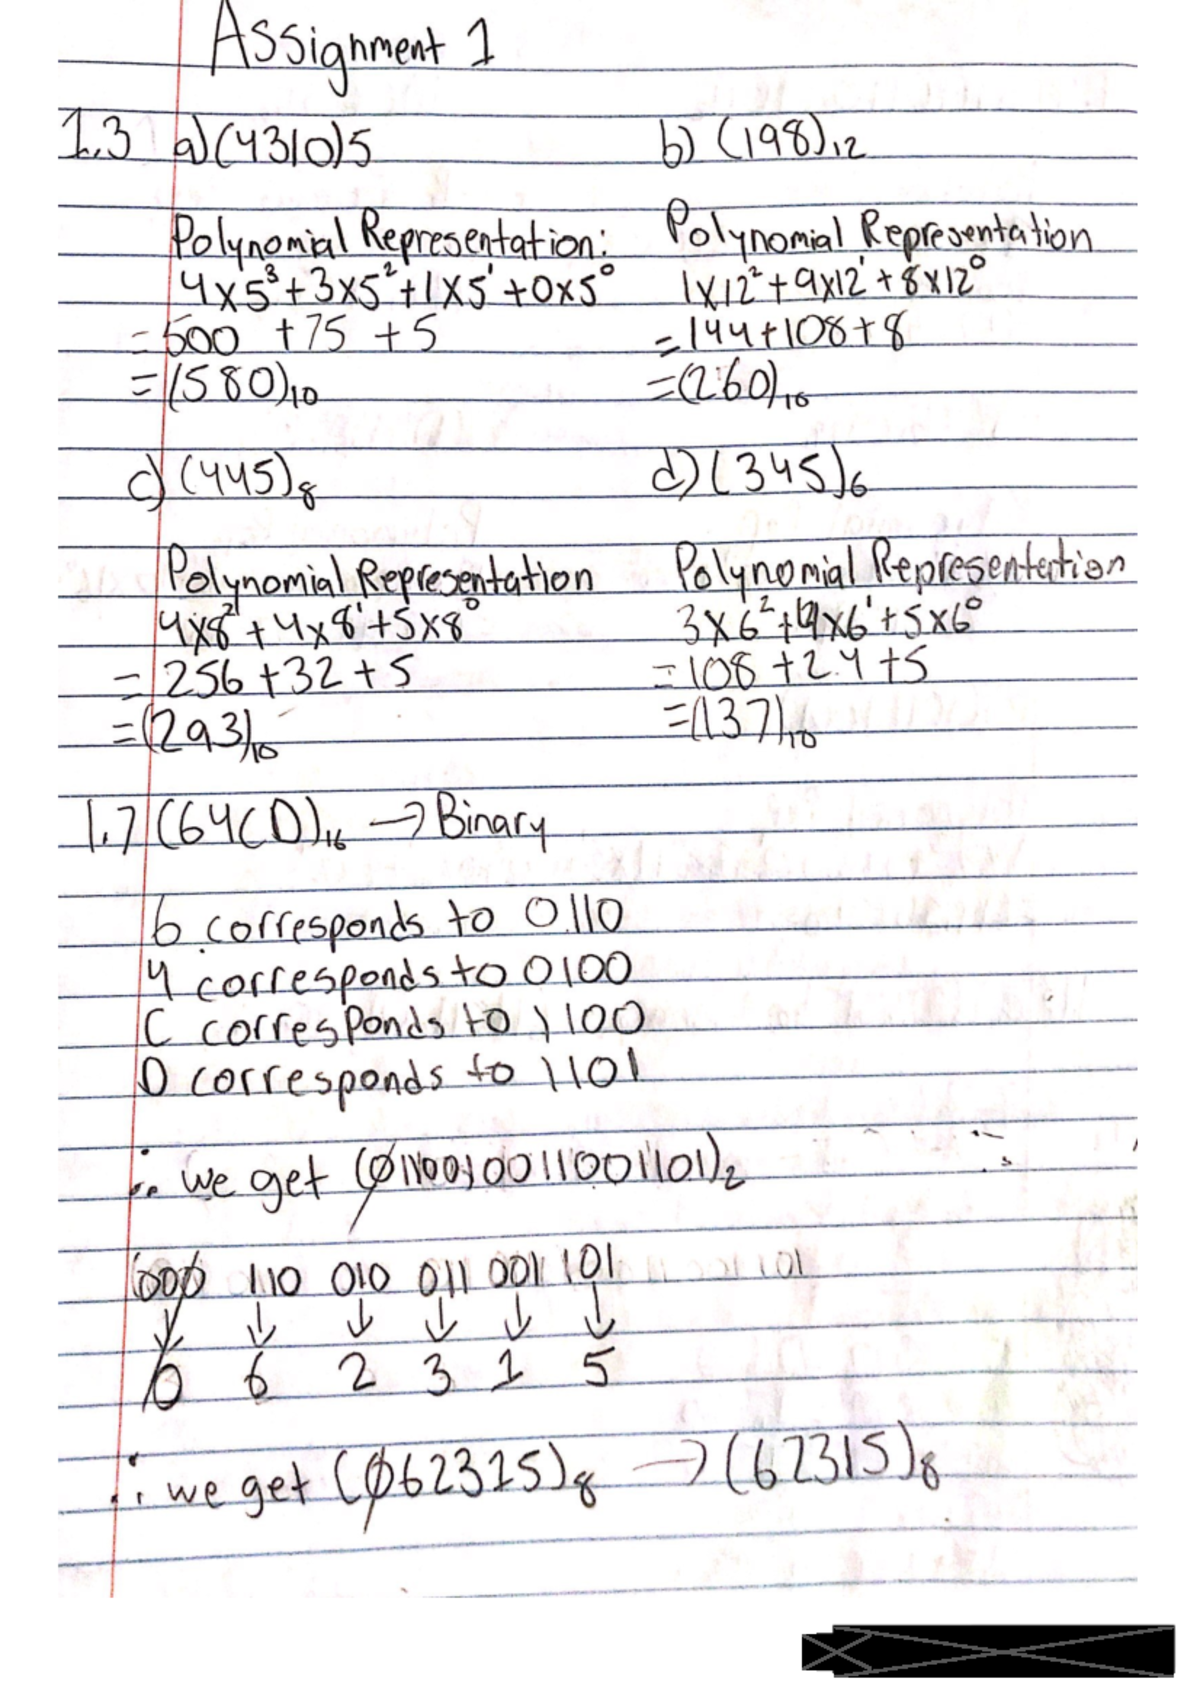 Assignment 1
1.3 a) (4310)5
b) (198)₁₂
Polynomial Representation:
4x5³+3x5²+1x5¹+0x5⁰
=500 +75 +5
=(580)₁₀
Polynomial Representation
1x12²+9x12¹+8x12⁰
=144+108+8
=(260)₁₀
c) (445)₈
d) (345)₆
Polynomial Representation
4x8²+4x8¹+5x8⁰
= 256+32+5
=(293)₁₀
Polynomial Representation
3x6²+4x6¹+5x6⁰
=108+24+5
=(137)₁₀
1.7 (64CD)₁₆ → Binary
6 corresponds to 0110
4 corresponds to 0100
C corresponds to 1100
D corresponds to 1101
∴ we get (0110010011001101)₂
000 110 010 011 001 101
↓ ↓ ↓ ↓ ↓ ↓
0 6 2 3 1 5
∴ we get (062315)₈ → (62315)₈